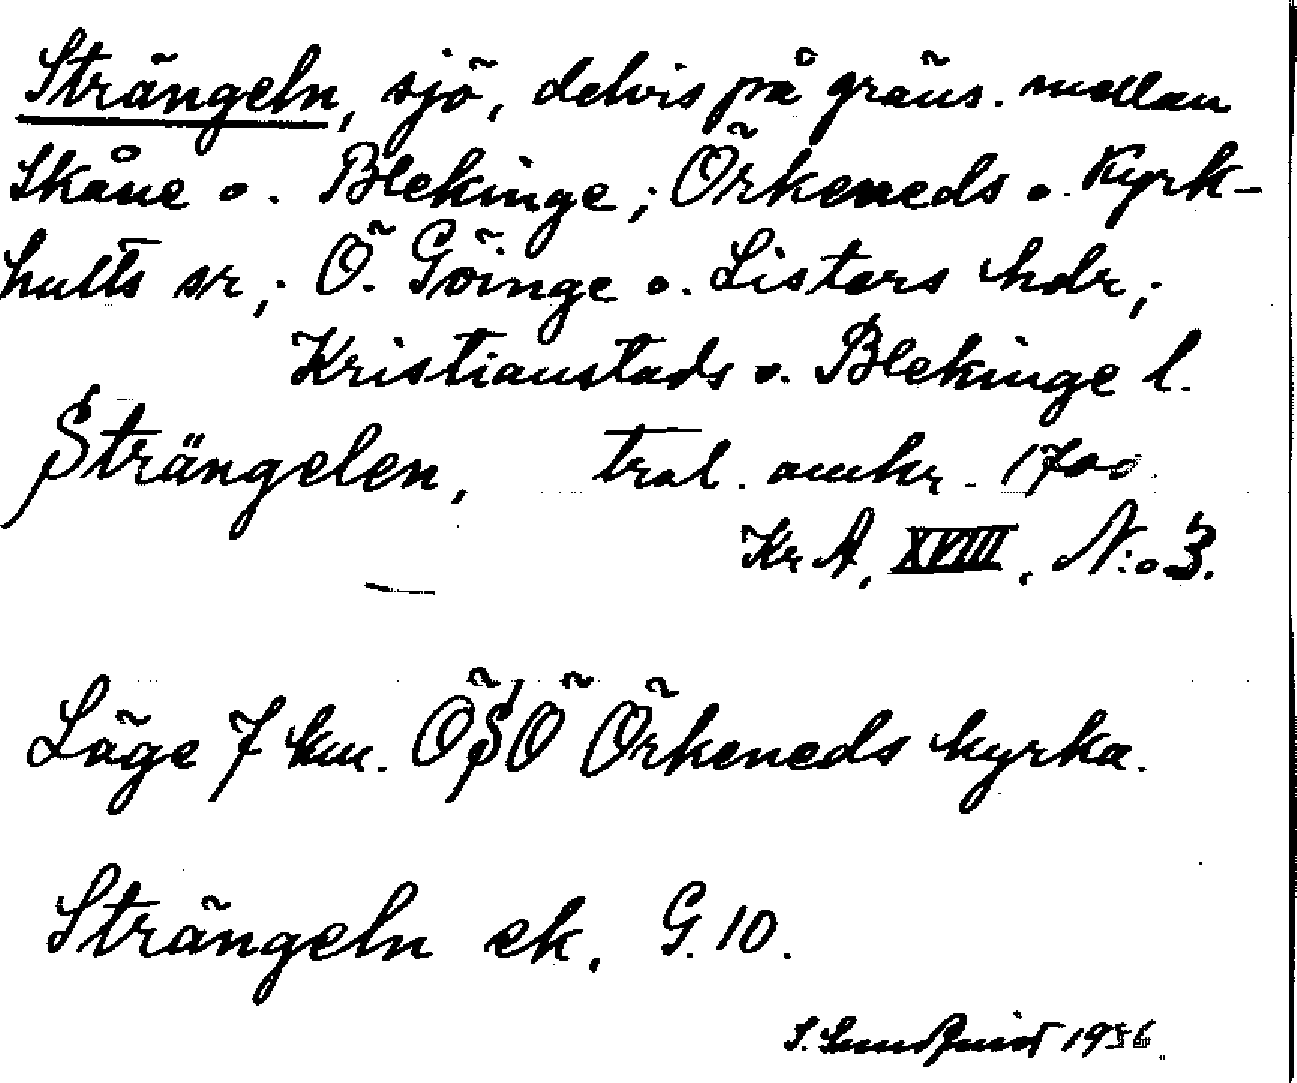 Strängeln, sjö, delvis på gräns. mellan
Skåne o. Blekinge; Örkeneds o. Kyrk-
hults sr,; Ö. Göinge o. Listers hdr,;
Kristianstads o. Blekinge l.
Strängelen, trol. omkr. 1700
Kr A, XVIII, N:o 3.
Läge 7 km. ÖSÖ Örkeneds kyrka.
Strängeln ek, G. 10.
S. 1936